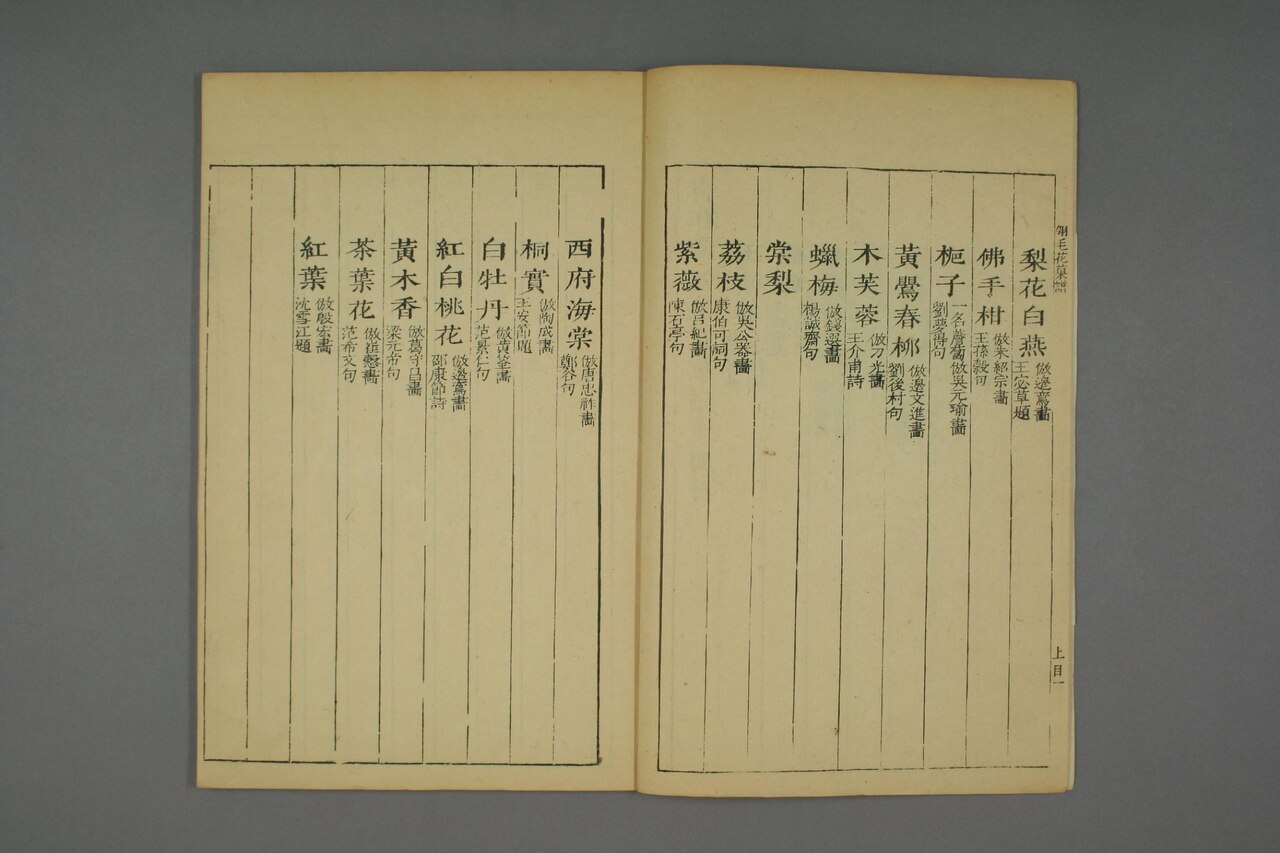 翎毛花菓譜
上目一
梨花白燕 倣邊鸞畵 王宓草題
佛手柑 倣朱紹宗畵 王蓀穀句
梔子 一名薝蔔倣吳元瑜畵 劉夢得句
黃鸎春柳 倣邊文進畵 劉後村句
木芙蓉 倣刀光畵 王介甫詩
蠟梅 倣錢選畵 楊誠齋句
棠梨
荔枝 倣吳公器畵 康伯可詞句
紫薇 倣呂紀畵 陳石亭句
西府海棠 倣唐忠祚畵 鄭谷句
桐實 倣陶成畵 王安節題
白牡丹 倣黃筌畵 范景仁句
紅白桃花 倣邊鸞畵 邵康節詩
黃木香 倣葛守昌畵 梁元帝句
茶葉花 倣崔慤畵 范希文句
紅葉 倣殷宏畵 沈雪江題